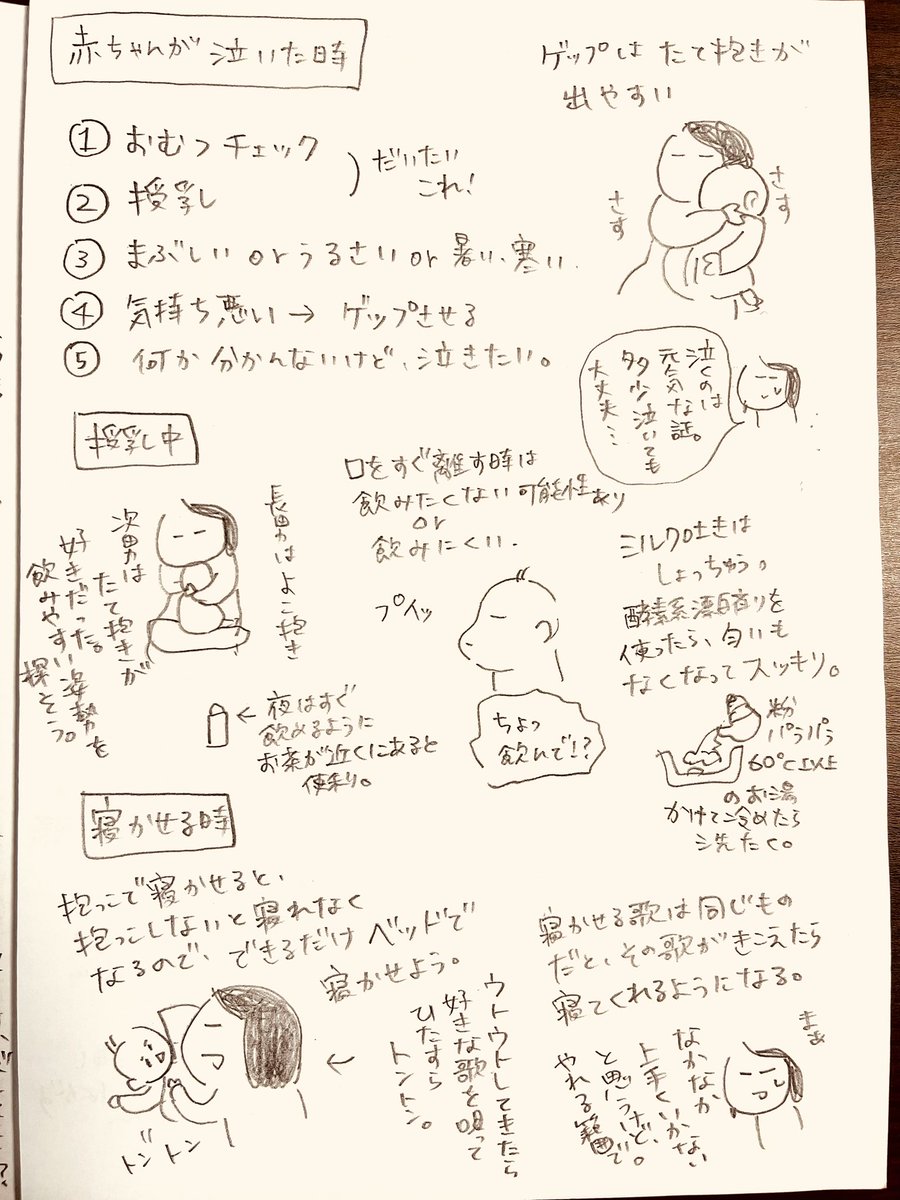 赤ちゃんが泣いた時
① おむつチェック
② 授乳
だいたい
これ!
③ まぶしい or うるさい or 暑い、寒い.
④ 気持ち悪い→ ゲップさせる
⑤ 何か分かんないけど、泣きたい。
ゲップは たて抱きが
出やすい
さす
さす
泣くのは
元気な証。
多少泣いても
大丈夫…
授乳中
長男はよこ抱き
次男は
たて抱きが
好きだった。
飲みやすい姿勢を
探そう。
口をすぐ離す時は
飲みたくない可能性あり
or
飲みにくい.
プイッ
ちょっ
飲んで!?
← 夜はすぐ
飲めるように
お茶が近くにあると
便利。
ミルク吐きは
しょっちゅう。
酵素系漂白剤を
使ったら、匂いも
なくなってスッキリ。
粉
パラパラ
60℃以上
のお湯
かけて冷めたら
洗たく。
寝かせる時
抱っこで寝かせると、
抱っこしないと寝れなく
なるので、できるだけ ベッドで
寝かせよう。
← ウトウトしてきたら
好きな歌を唄って
ひたすら
トントン。
トントン
寝かせる歌は同じもの
だと、その歌がきこえたら
寝てくれるようになる。
まぁ
なかなか
上手くいかない
と思うけど、
やれる範囲で。